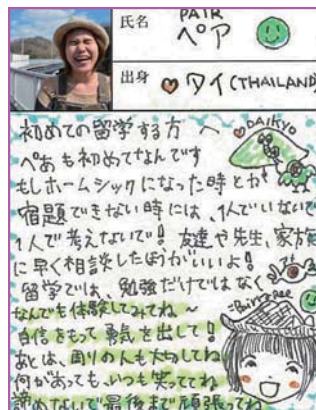 氏名
PAIR
ペア
出身
タイ(THAILAND)
初めての留学する方へ
DAIKYO
ペあも初めてなんです
もしホームシックになった時とか
宿題できない時には、1人でいないで
1人で考えないで！友達や先生、家族
に早く相談したほうがいいよ！
留学では、勉強だけではなく
なんでも体験してみてね〜
自信をもって勇気を出して！
あとは、周りの人も大切してね
何があっても、いつも笑っててね
諦めないで最後まで頑張ってね